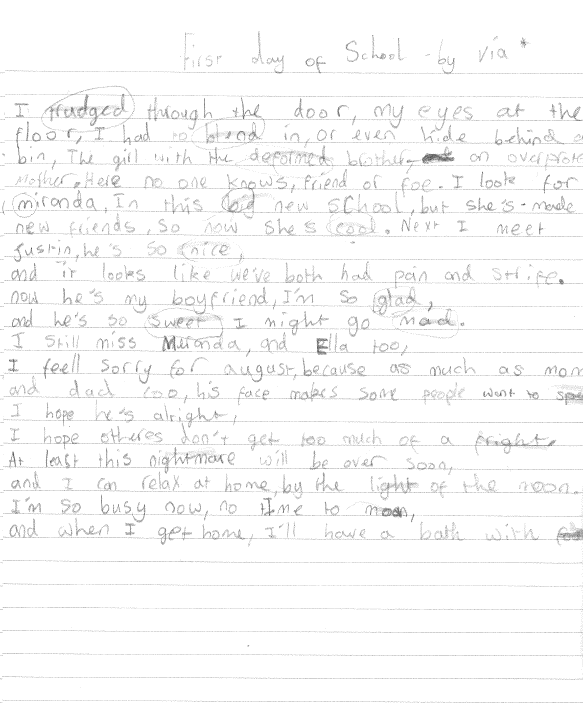 First day of School - by via *
I trudged through the door, my eyes at the
floor, I had to blend in, or even hide behind a
bin, The girl with the deformed brother, an overprote
Mother. Here no one knows, friend or foe. I look for
miranda, In this big new SChool, but she's made
new friends, so now she's cool. Next I meet
Justin, he's so nice,
and it looks like we've both had pain and strife.
now he's my boyfriend, I'm so glad,
and he's so sweet I might go mad.
I still miss Miranda, and Ella too,
I feell sorry for august, because as much as mom
and dad too, his face makes some people want to
I hope he's alright,
I hope otheres don't get too much of a fright.
At least this nightmare will be over soon,
and I can relax at home, by the light of the moon.
I'm so busy now, no time to moan,
and when I get home, I'll have a bath with